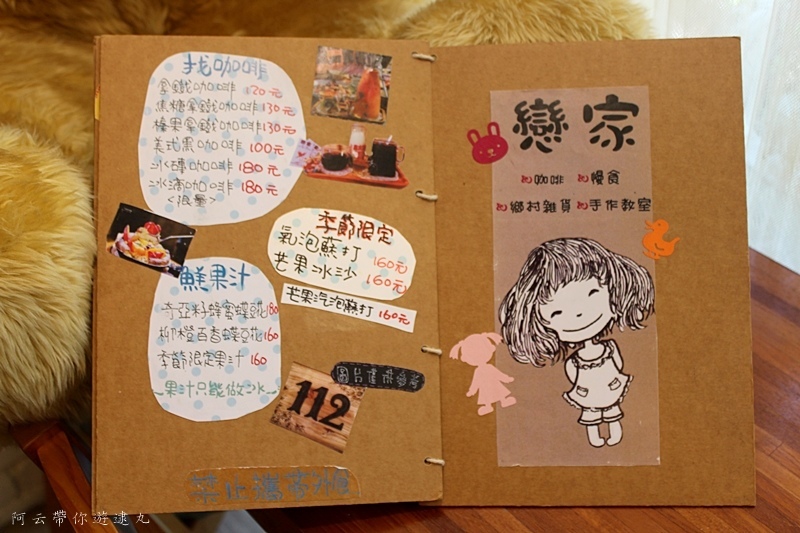 找咖啡
拿鐵咖啡 120元
焦糖拿鐵咖啡130元
榛果拿鐵咖啡130元
美式黑咖啡 100元
冰磚咖啡 180元
冰滴咖啡 180元
<限量>
季節限定
氣泡蘇打 160元
芒果冰沙 160元
芒果汽泡蘇打 160元
鮮果汁
奇亞籽蜂蜜蝶豆花180
柳橙百香蝶豆花160
季節限定果汁 160
~果汁只能做冰~
圖片僅供參考
112
禁止攜帶外食
戀家
咖啡 慢食
鄉村雜貨 手作教室
阿云帶你遊逮丸